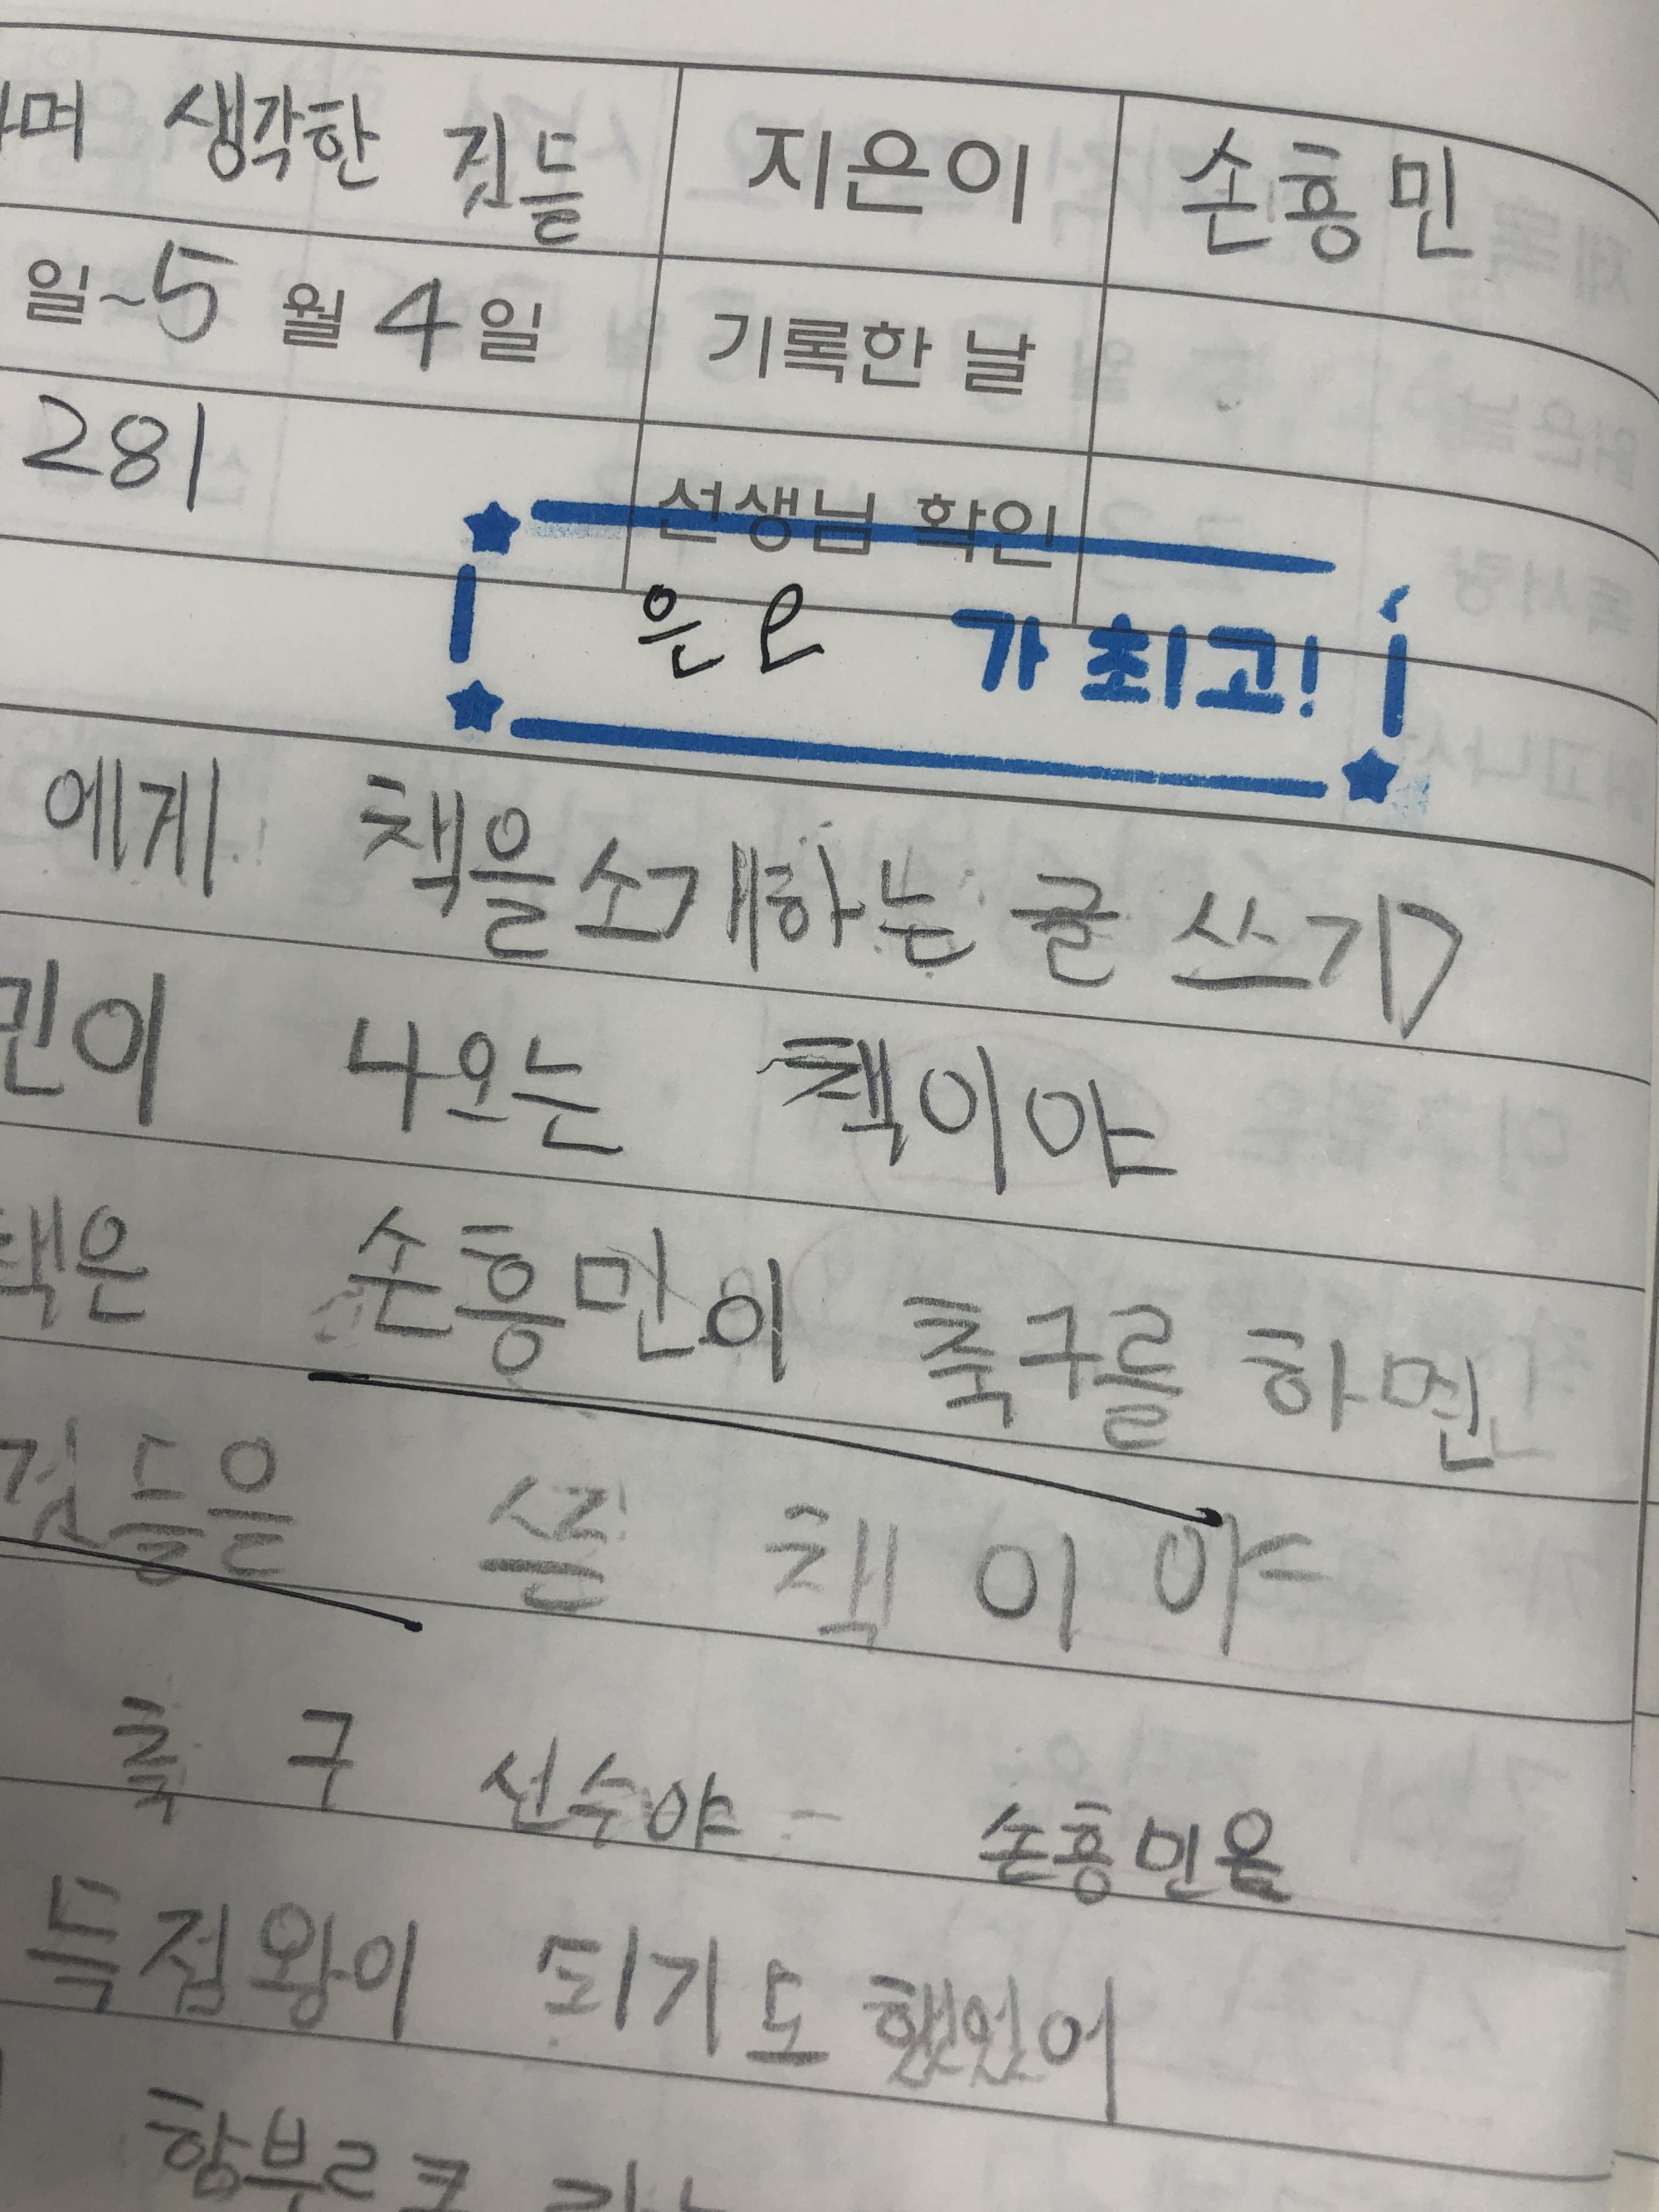 며 생각한 것들 지은이 손흥민
일~5월 4일 기록한 날
281 선생님 확인
가 최고!
에게 책을 소개하는 글 쓰기>
민이 나오는 책이야
책은 손흥민이 축구를 하면
것들을 쓴 책이야
축구 선수야 손흥민은
득점왕이 되기도 했었어
함부로